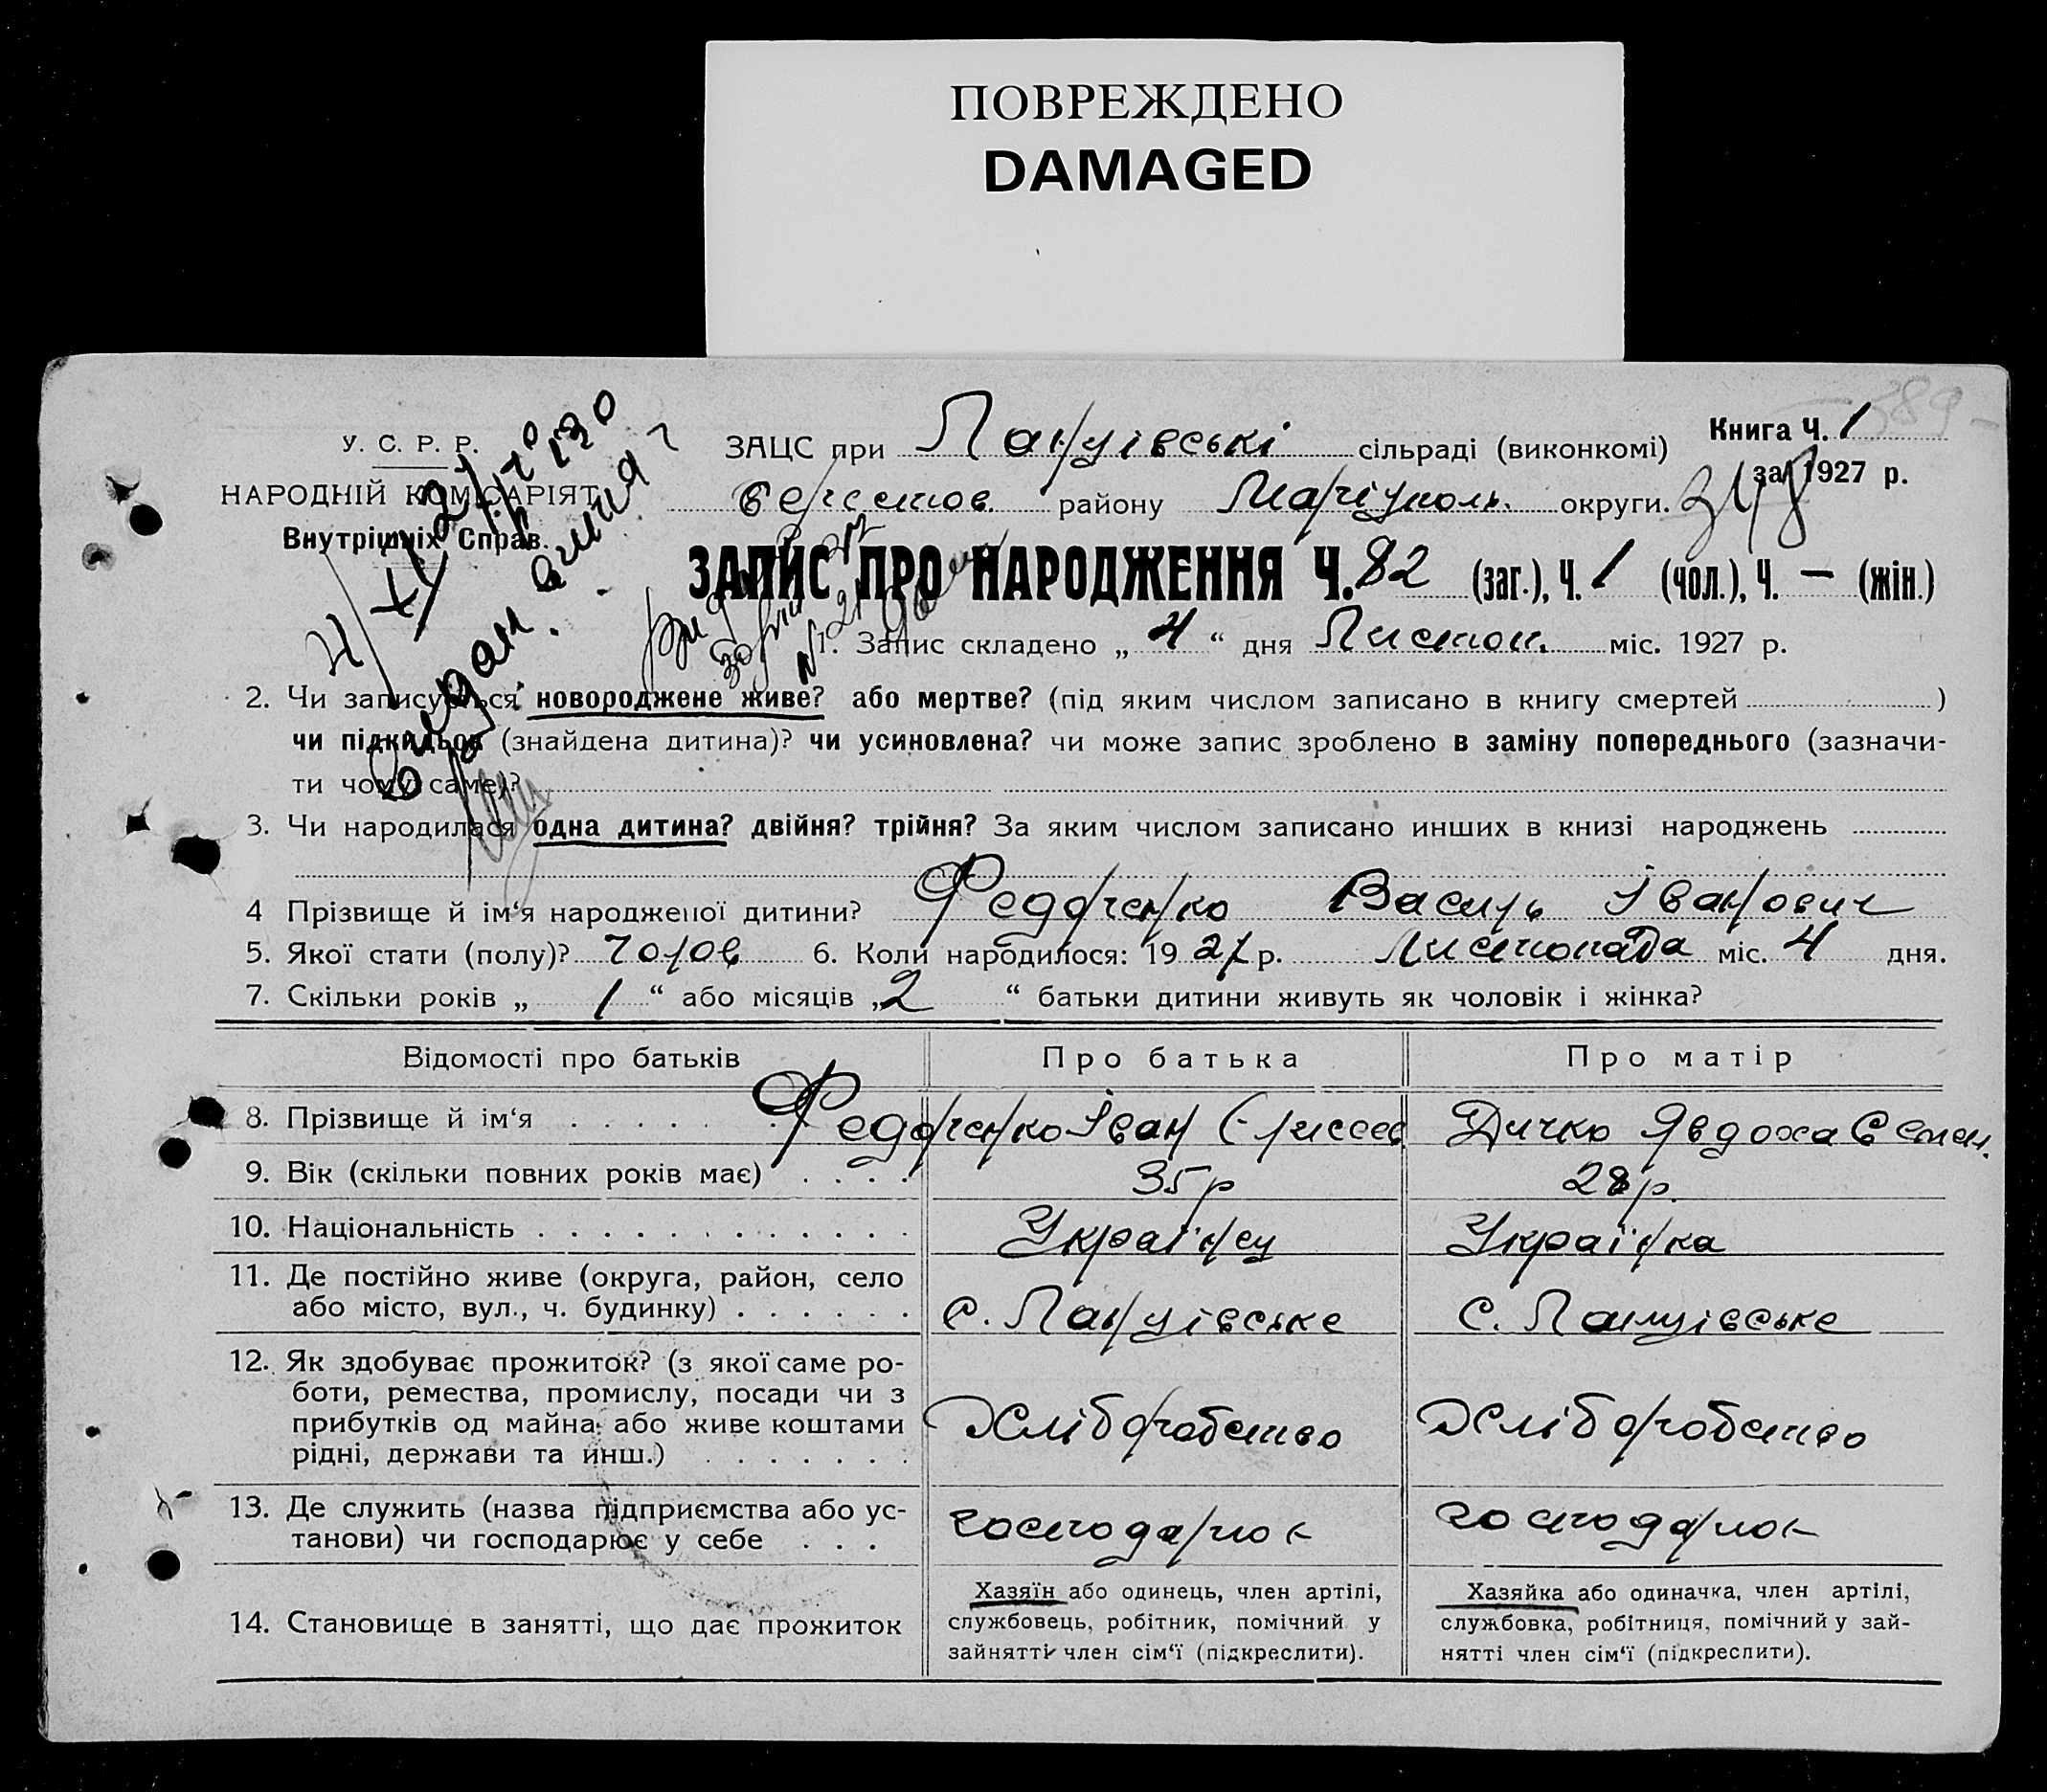 ПОВРЕЖДЕНО
DAMAGED
У. С. Р. Р.
НАРОДНІЙ КОМІСАРІЯТ
Внутрішніх Справ.
ЗАЦС при Ланцівські сільраді (виконкомі)
Книга Ч. 1
за 1927 р.
389
районy Маріуполь. округи. 348
ЗАПИС ПРО НАРОДЖЕННЯ Ч. 82 (заг.), Ч. 1 (чол.), Ч. — (жін.)
1. Запис складено „ 4 “ дня Листоп. міс. 1927 р.
2. Чи записується новороджене живе? або мертве? (під яким числом записано в книгу смертей )
чи підкидьок (знайдена дитина)? чи усиновлена? чи може запис зроблено в заміну попереднього (зазначи-
ти чому саме)?
3. Чи народилася одна дитина? двійня? трійня? За яким числом записано инших в книзі народжень
4 Прізвище й ім‘я народженої дитини? Федорченко Василь Іванович
5. Якої стати (полу)? Чолов 6. Коли народилося: 1927 р. Листопада міс. 4 дня.
7. Скільки років „ 1 “ або місяців „2 “ батьки дитини живуть як чоловік і жінка?
Відомості про батьків Про батька Про матір
8. Прізвище й ім‘я . . . . . Федорченко Іван Дичко Явдоха Семен.
9. Вік (скільки повних років має) . . . . 35 р 28 р.
10. Національність . . . . . . . . . . . . . Українец Українка
11. Де постійно живе (округа, район, село
або місто, вул., ч. будинку) . . . . . . с. Ланцівське с. Ланцівське
12. Як здобуває прожиток? (з якої саме ро-
боти, ремества, промислу, посади чи з
прибутків од майна або живе коштами
рідні, держави та инш.) . . . . . . . Хліборобство Хліборобство
13. Де служить (назва підприємства або ус-
танови) чи господарює у себе . . . господарює господарює
14. Становище в занятті, що дає прожиток
Хазяїн або одинець, член артілі,
службовець, робітник, помічний у
зайнятті член сім‘ї (підкреслити).
Хазяйка або одиначка, член артілі,
службовка, робітниця, помічний у зай-
нятті член сім‘ї (підкреслити).